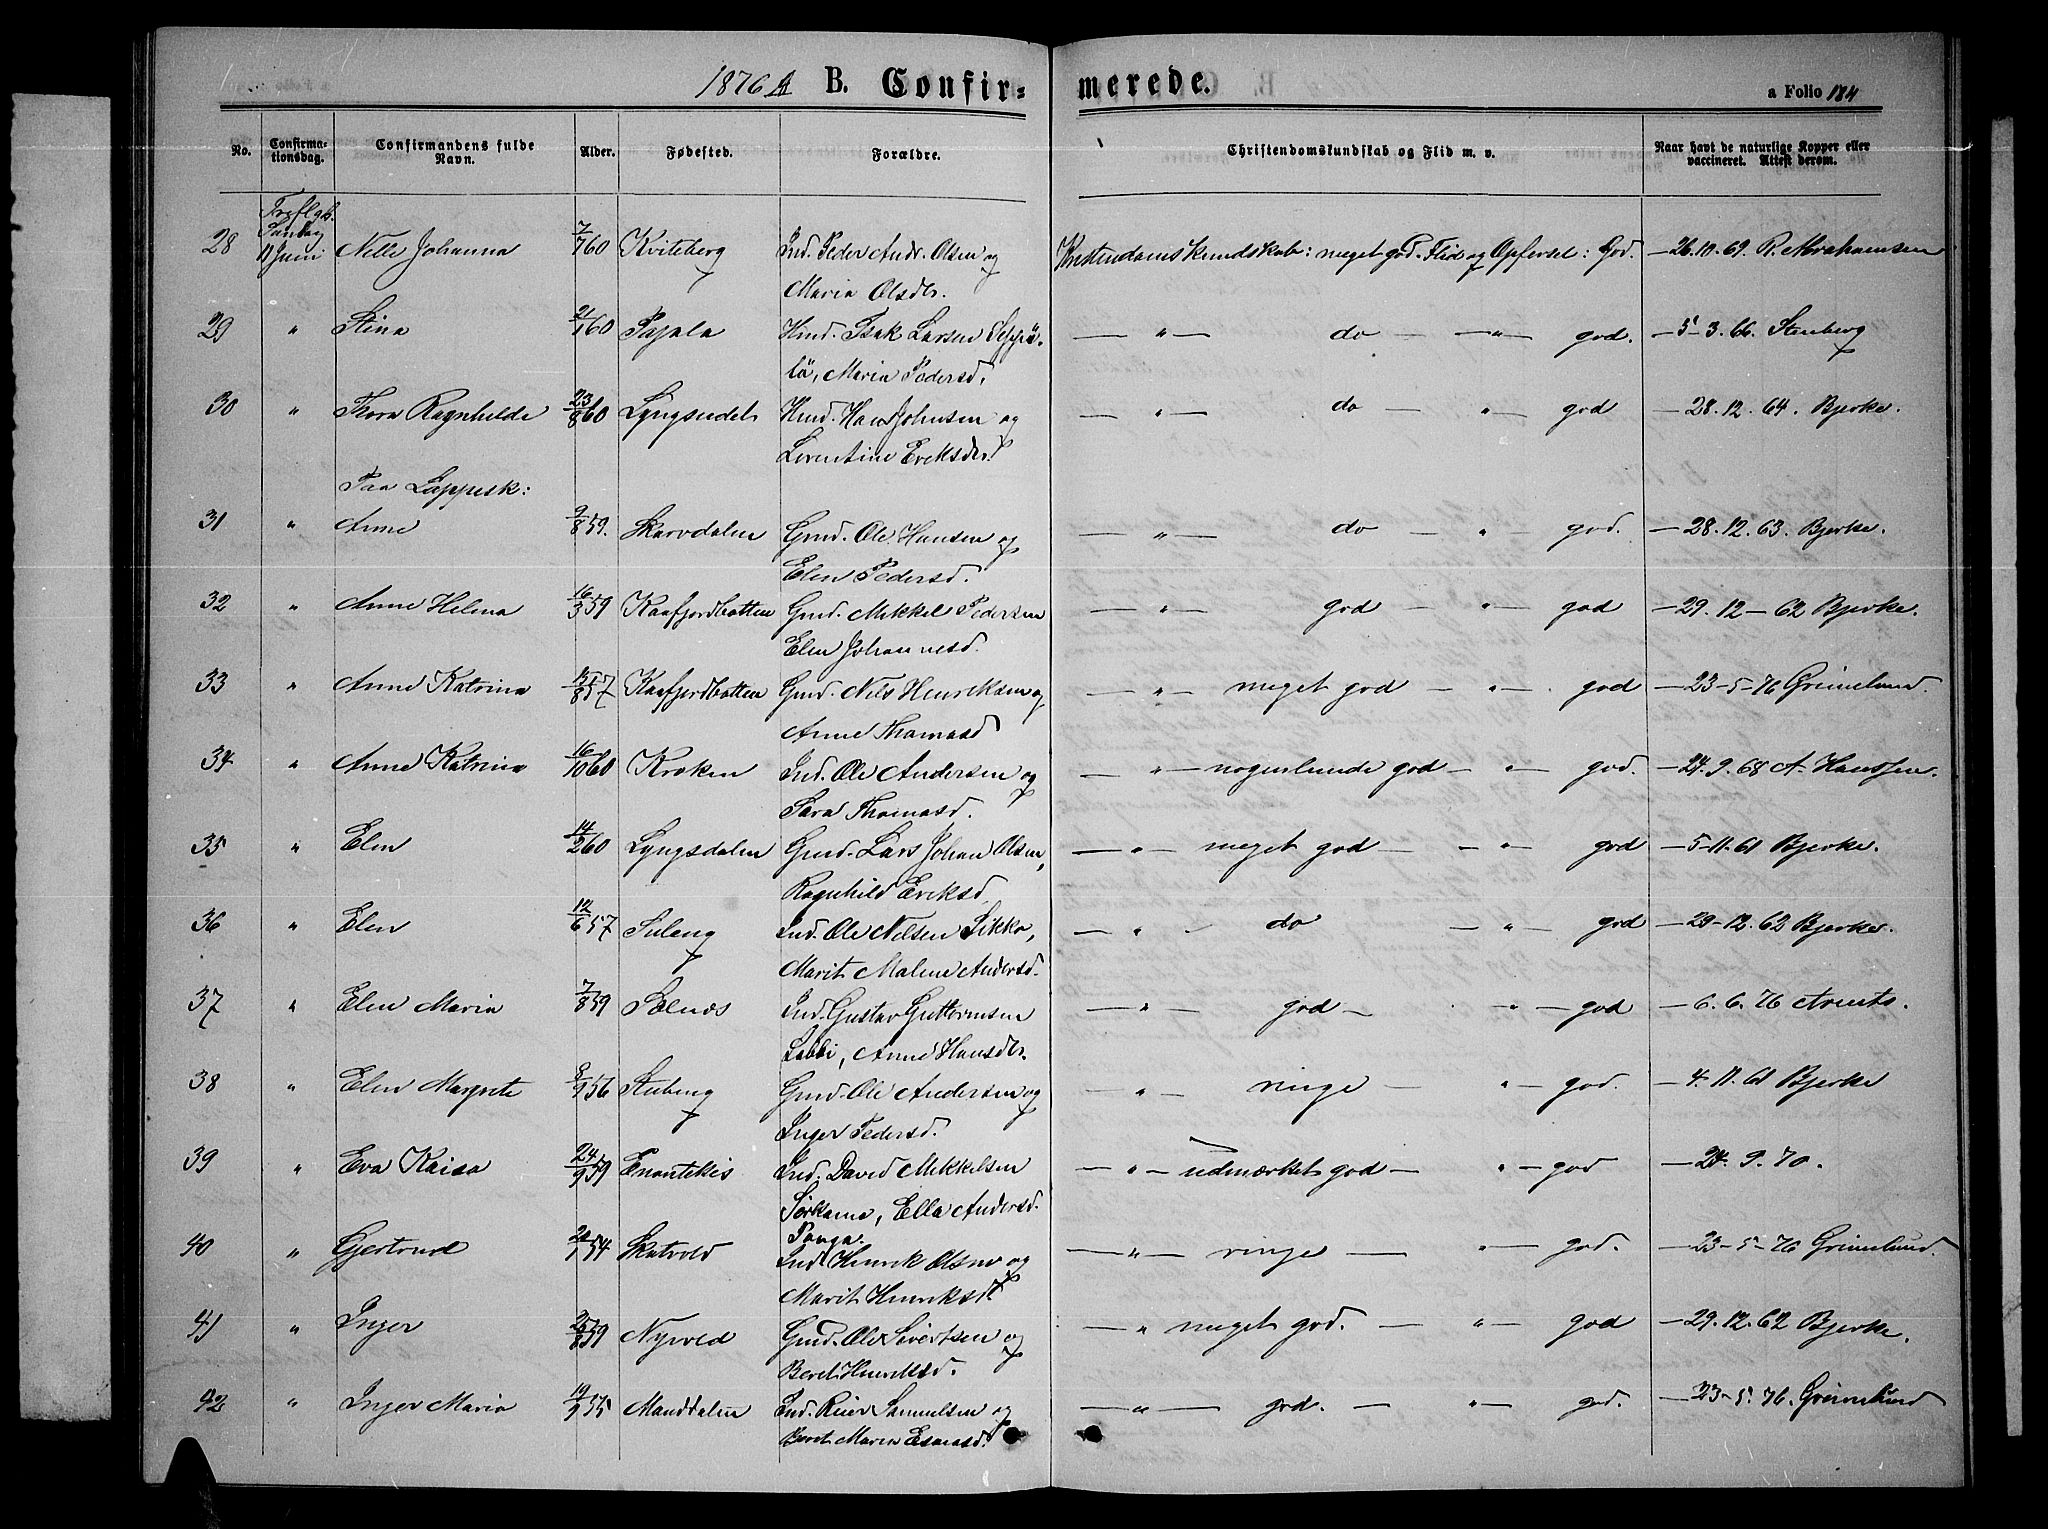 1876 B. Confirmerede. a Folio 184
No. Confirmationsdag. Confirmandens fulde Navn. Alder. Fødested. Forældre. Christendomskundskab og Flid m. v. Naar havt de naturlige Kopper eller vaccineret. Attest derom.
Trefgh.
28 Søndag Nille Johanna 7/7 60 Kviteberg Ind. Peder Andr. Olsen og Kristendomskundskab: meget god. Flid og Opførsel: God. — 26.10.69. R. Abrahamsen
11 Juni Maria Olsdtr.
29 " Stina 2/1 60 Pajala Kind. Isak Larsen Seppä- — " — do — " — god. — 5-3.66. Stenberg
lä, Maria Pedersd.
30 " Thora Ragnhilde 23/8 60 Lyngseidet Kind. Hans Johnsen og — " — do — " god — 28.12.64. Bjerke.
Lorentine Eriksdtr.
Paa Lappesk:
31 " Anne 9/8 59. Skarvdalen Gmd. Ole Hansen og — " — do — " — god. — 28.12.63. Bjerke.
Elen Pedersd.
32 " Anne Helena 16/3 59 Kaafjordbotten Gmd. Mikkel Pedersen — " — god — " — god — 29.12-62 Bjerke.
Elen Johannesd.
33 " Anne Katrina 15/8 57 Kaafjordbotten Gmd. Nils Henriksen og — " — meget god — " — god — 23-5-76 Grimelund.
Anne Thomasd
34 " Anne Katrina 16/10 60 Kroken Ind. Ole Andersen og — " — nogenlunde god — " — god. — 24.9.68 A. Hanssen.
Sara Thomasd.
35 " Elen 14/2 60 Lyngsdalen Gmd. Lars Johan Olsen, — " — meget god — " — god — 5-11.61 Bjerke.
Ragnhild Eriksd.
36 " Elen 12/6 57 Ind. Ole Nilsen Sikko, — " — do — " — god — 29-12.62 Bjerke.
Marit Malene Andersd.
37 " Elen Maria 7/8 59 Solnes Ind. Gustav Guttormsen — " — god — " — god — 6.6.76 Arents.
Labbi, Anne Hansdtr.
38 " Elen Margrete 8/9 56 Gmd. Ole Andersen og " — ringe — " — god. — 4.11.61 Bjerke
Inger Pedersd.
39 " Eva Kaisa 24/9 59 Enontekis Ind. David Mikkelsen — " — udmærket god — " — god — 24.9.70.
Siikama, Ella Andersd.
Panga.
40 " Gjertrud 20/1 54 Skatvold Ind. Henrik Olsen og — " — ringe — " — god. — 23-5-76 Grimelund.
Marit Henriksd.
41 " Inger 25/8 59 Nyvold Gmd. Ole Sivertsen og — " meget god. — " — god — 29.12.62 Bjerke.
Beret Henriksd.
42 " Inger Maria 19/9 55 Manddalen Ind. Reier Samuelsen og — " — god. — " — god. — 23-5.76. Grimelund
Berit Maria Esaiasd.